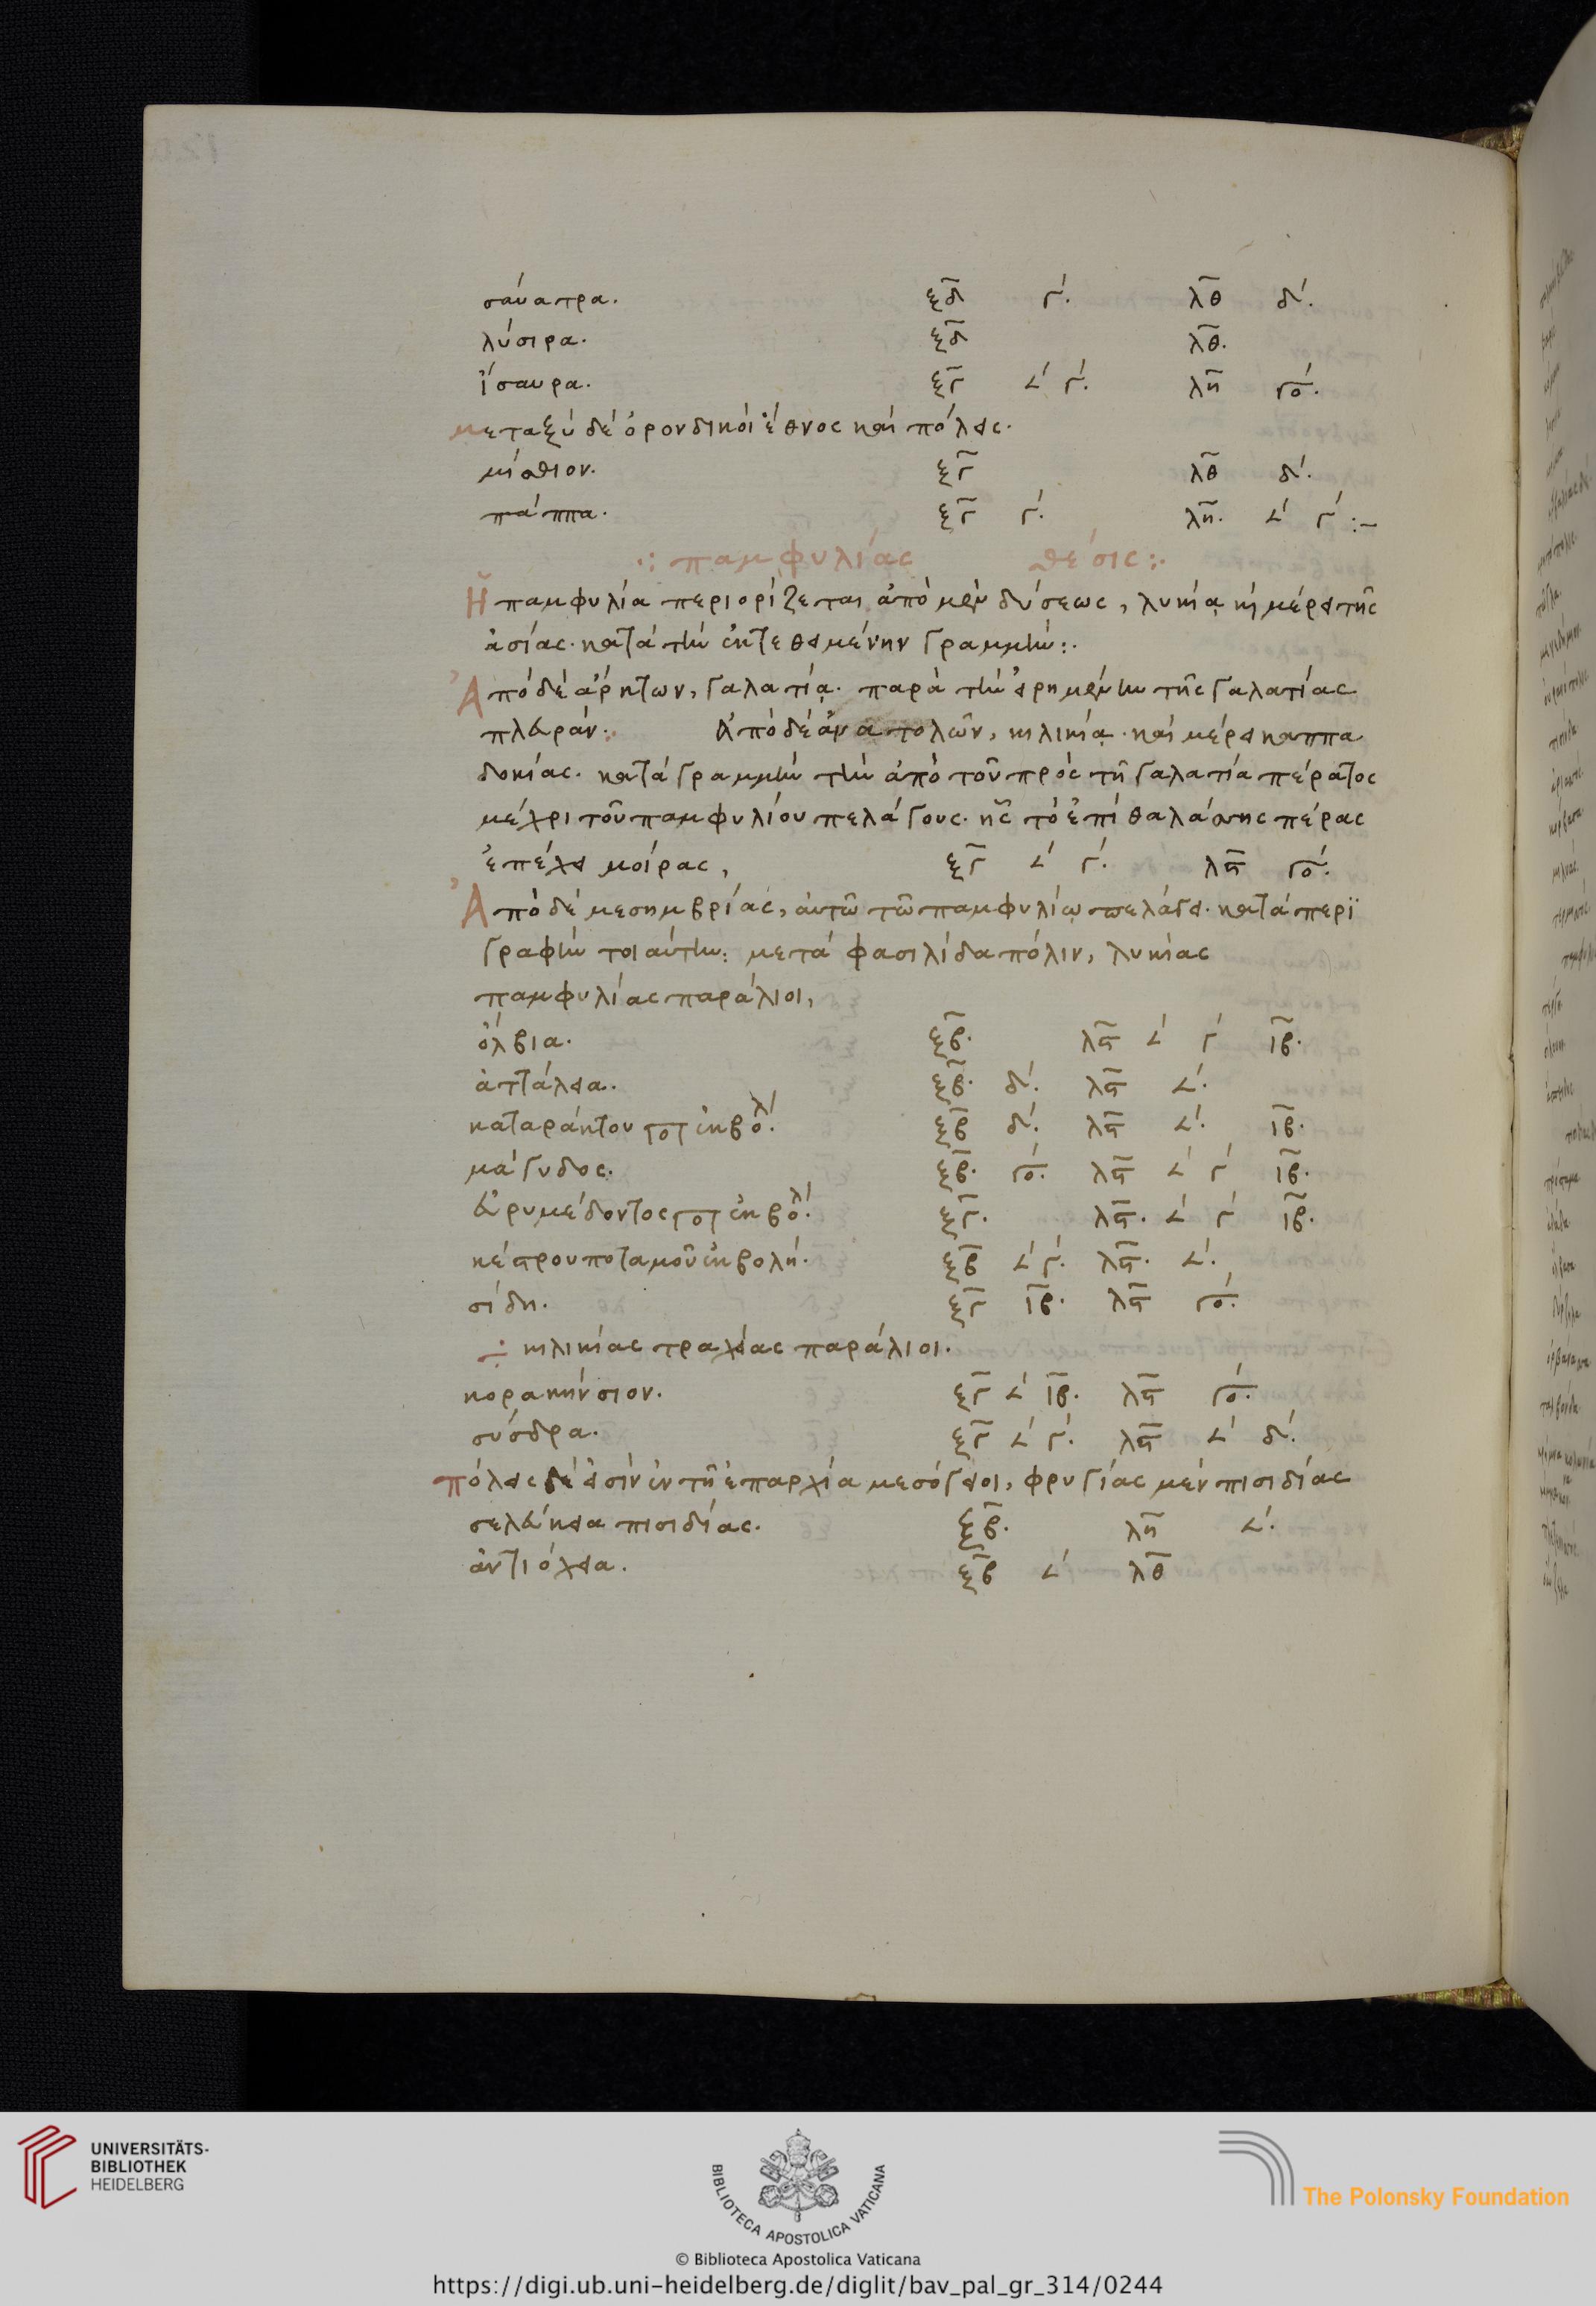 σαύατρα. ξδ γ´. λθ δ´.
λύσιρα. ξδ λθ.
ἴσαυρα. ξγ 𐅵´ γ´. λη γο´.
μεταξύ δέ ὀρονδικόι ἔθνος καί πόλεις.
μίσθιον. ξγ λθ δ´.
πάππα. ξγ γ´. λη. 𐅵´ γ´ :-
·: παμφυλίας θέσις :·
Ἡ παμφυλία περιορίζεται ἀπό μέν δύσεως, λυκίᾳ κ μέρει τῆς
ἀσίας. κατά τήν ἐκτεθειμένην γραμμήν :.
Ἀπό δέ ἄρκτων, γαλατίᾳ. παρὰ τήν εἰρημένην τῆς γαλατίας
πλευράν: Ἀπό δέ ἀνατολῶν, κιλικίᾳ. καί μέρει καππα
δοκίας. κατά γραμμήν τήν ἀπό τοῦ πρός τῆ γαλατία πέρατος
μέχρι τοῦ παμφυλίου πελάγους. ἧς τό ἐπί θαλάσσης πέρας
ἐπέχει μοίρας, ξγ 𐅵´ γ´. λϛ γο´.
Ἀπό δέ μεσημβρίας, αὐτῶ τῶ παμφυλίῳ πελάγει. κατά περϊ
γραφήν τοιαύτην: μετά φασιλίδα πόλιν, λυκίας
παμφυλίας παράλιοι,
ὄλβια. ξβ. λϛ 𐅵´ γ´ ιβ.
ἀττάλεια. ξβ. δ´. λϛ 𐅵´.
καταράκτου ποτ ἐκβολ´. ξβ δ´. λϛ 𐅵´. ιβ.
μάγυδος. ξβ. γο´. λϛ 𐅵´ γ´ ιβ.
εὐρυμέδοντος ποτ ἐκβολ´. ξγ. λϛ. 𐅵´ γ´ ιβ.
κέστρου ποταμοῦ ἐκβολή. ξβ 𐅵´ γ´. λϛ. 𐅵´.
σίδη. ξγ ιβ. λϛ γο´.
÷ κιλικίας τραχείας παράλιοι.
κορακήνσιον. ξγ 𐅵´ ιβ. λϛ γο´.
σύεδρα. ξγ 𐅵´ γ´. λϛ 𐅵´ δ´.
πόλεις δέ εἰσίν ἐν τῆ ἐπαρχία μεσόγειοι, φρυγίας μέν πισιδίας
σελεύκεια πισιδίας. ξβ. λη 𐅵´.
ἀντιόχεια. ξβ 𐅵´ λθ
UNIVERSITÄTS-
BIBLIOTHEK
HEIDELBERG
BIBLIOTECA APOSTOLICA VATICANA
The Polonsky Foundation
© Biblioteca Apostolica Vaticana
https://digi.ub.uni-heidelberg.de/diglit/bav_pal_gr_314/0244